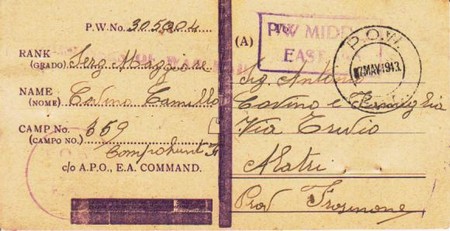 P.W. No. 305204
RANK
(GRADO) Serg. Maggiore
NAME
(NOME) Camillo
CAMP No.
(CAMPO NO.) 359
Compound
c/o A.P.O., E.A. COMMAND.
(A)
PW MIDD
EAST
P.O.W.
MAY 1943
Sig. Antonio
e Famiglia
Via
Alatri
Prov Frosinone